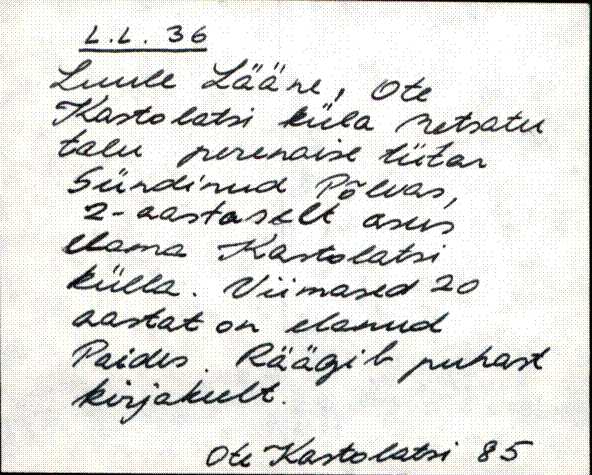 L.L. 36
Luule Lääne, Ote
Kastolatsi küla Metsatu
talu perenaise tütar
Sündinud Põlvas,
2-aastaselt asus
elama Kastolatsi
külla. Viimased 20
aastat on elanud
Paides. Räägib puhast
kirjakeelt.
Ote Kastolatsi 85